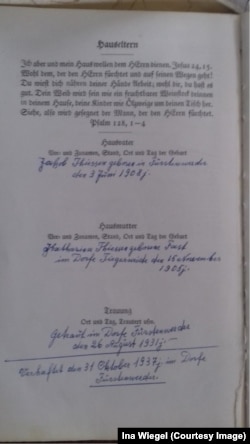 Hauseltern
Ich aber und mein Haus wollen dem HErrn dienen. Josua 24, 15.
Wohl dem, der den HErrn fürchtet und auf seinen Wegen geht!
Du wirst dich nähren deiner Hände Arbeit; wohl dir, du hast es
gut. Dein Weib wird sein wie ein fruchtbarer Weinstock drinnen
in deinem Hause, deine Kinder wie Ölzweige um deinen Tisch her.
Siehe, also wird gesegnet der Mann, der den HErrn fürchtet.
Psalm 128, 1–4
Hausvater
Vor- und Zunamen, Stand, Ort und Tag der Geburt
Jakob Thiessen geboren in Fürstenwerder
des 3 Juni 1908j.
Hausmutter
Vor- und Zunamen, Stand, Ort und Tag der Geburt
Thiessen geborene Fast
im Dorfe November
1908j.
Trauung
Ort und Tag, Trautext usw.
Getraut in Dorfe Fürstenwerder
des 26 August 1931j.
Verhaftet des 31 Oktober 1937j in Dorfe
Fürstenwerder.
Ina Wiegel (Courtesy Image)